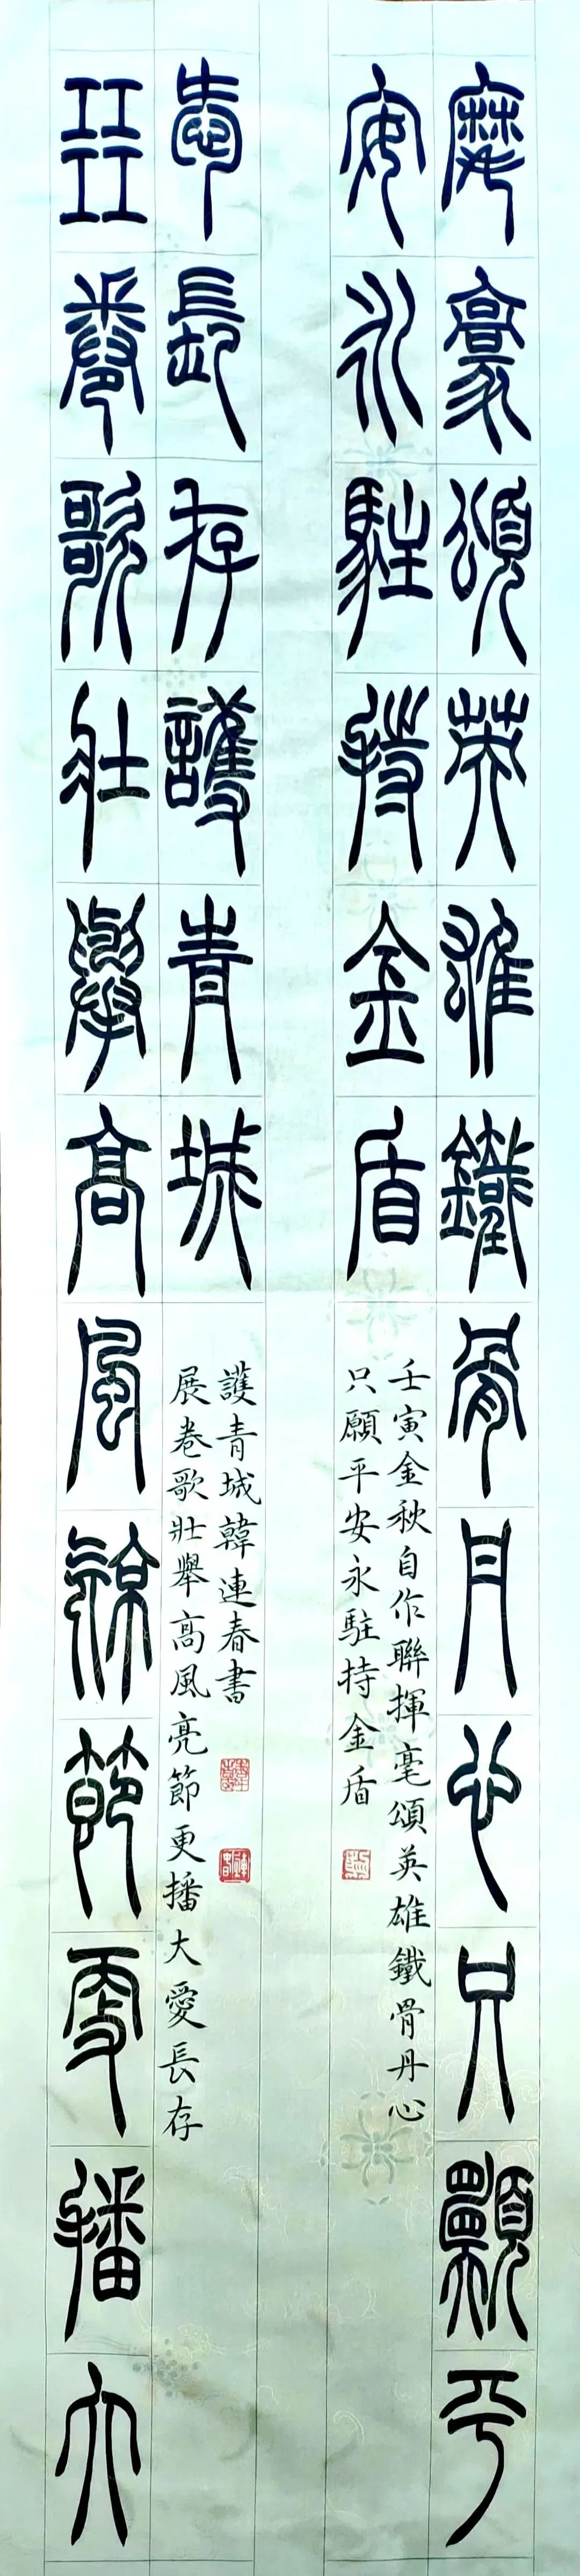 揮毫頌英雄鐵骨丹心只願平
安永駐持金盾
壬寅金秋自作聯揮毫頌英雄鐵骨丹心
只願平安永駐持金盾
展卷歌壯舉高風亮節更播大
愛長存護青城
展卷歌壯舉高風亮節更播大愛長存
護青城韓連春書